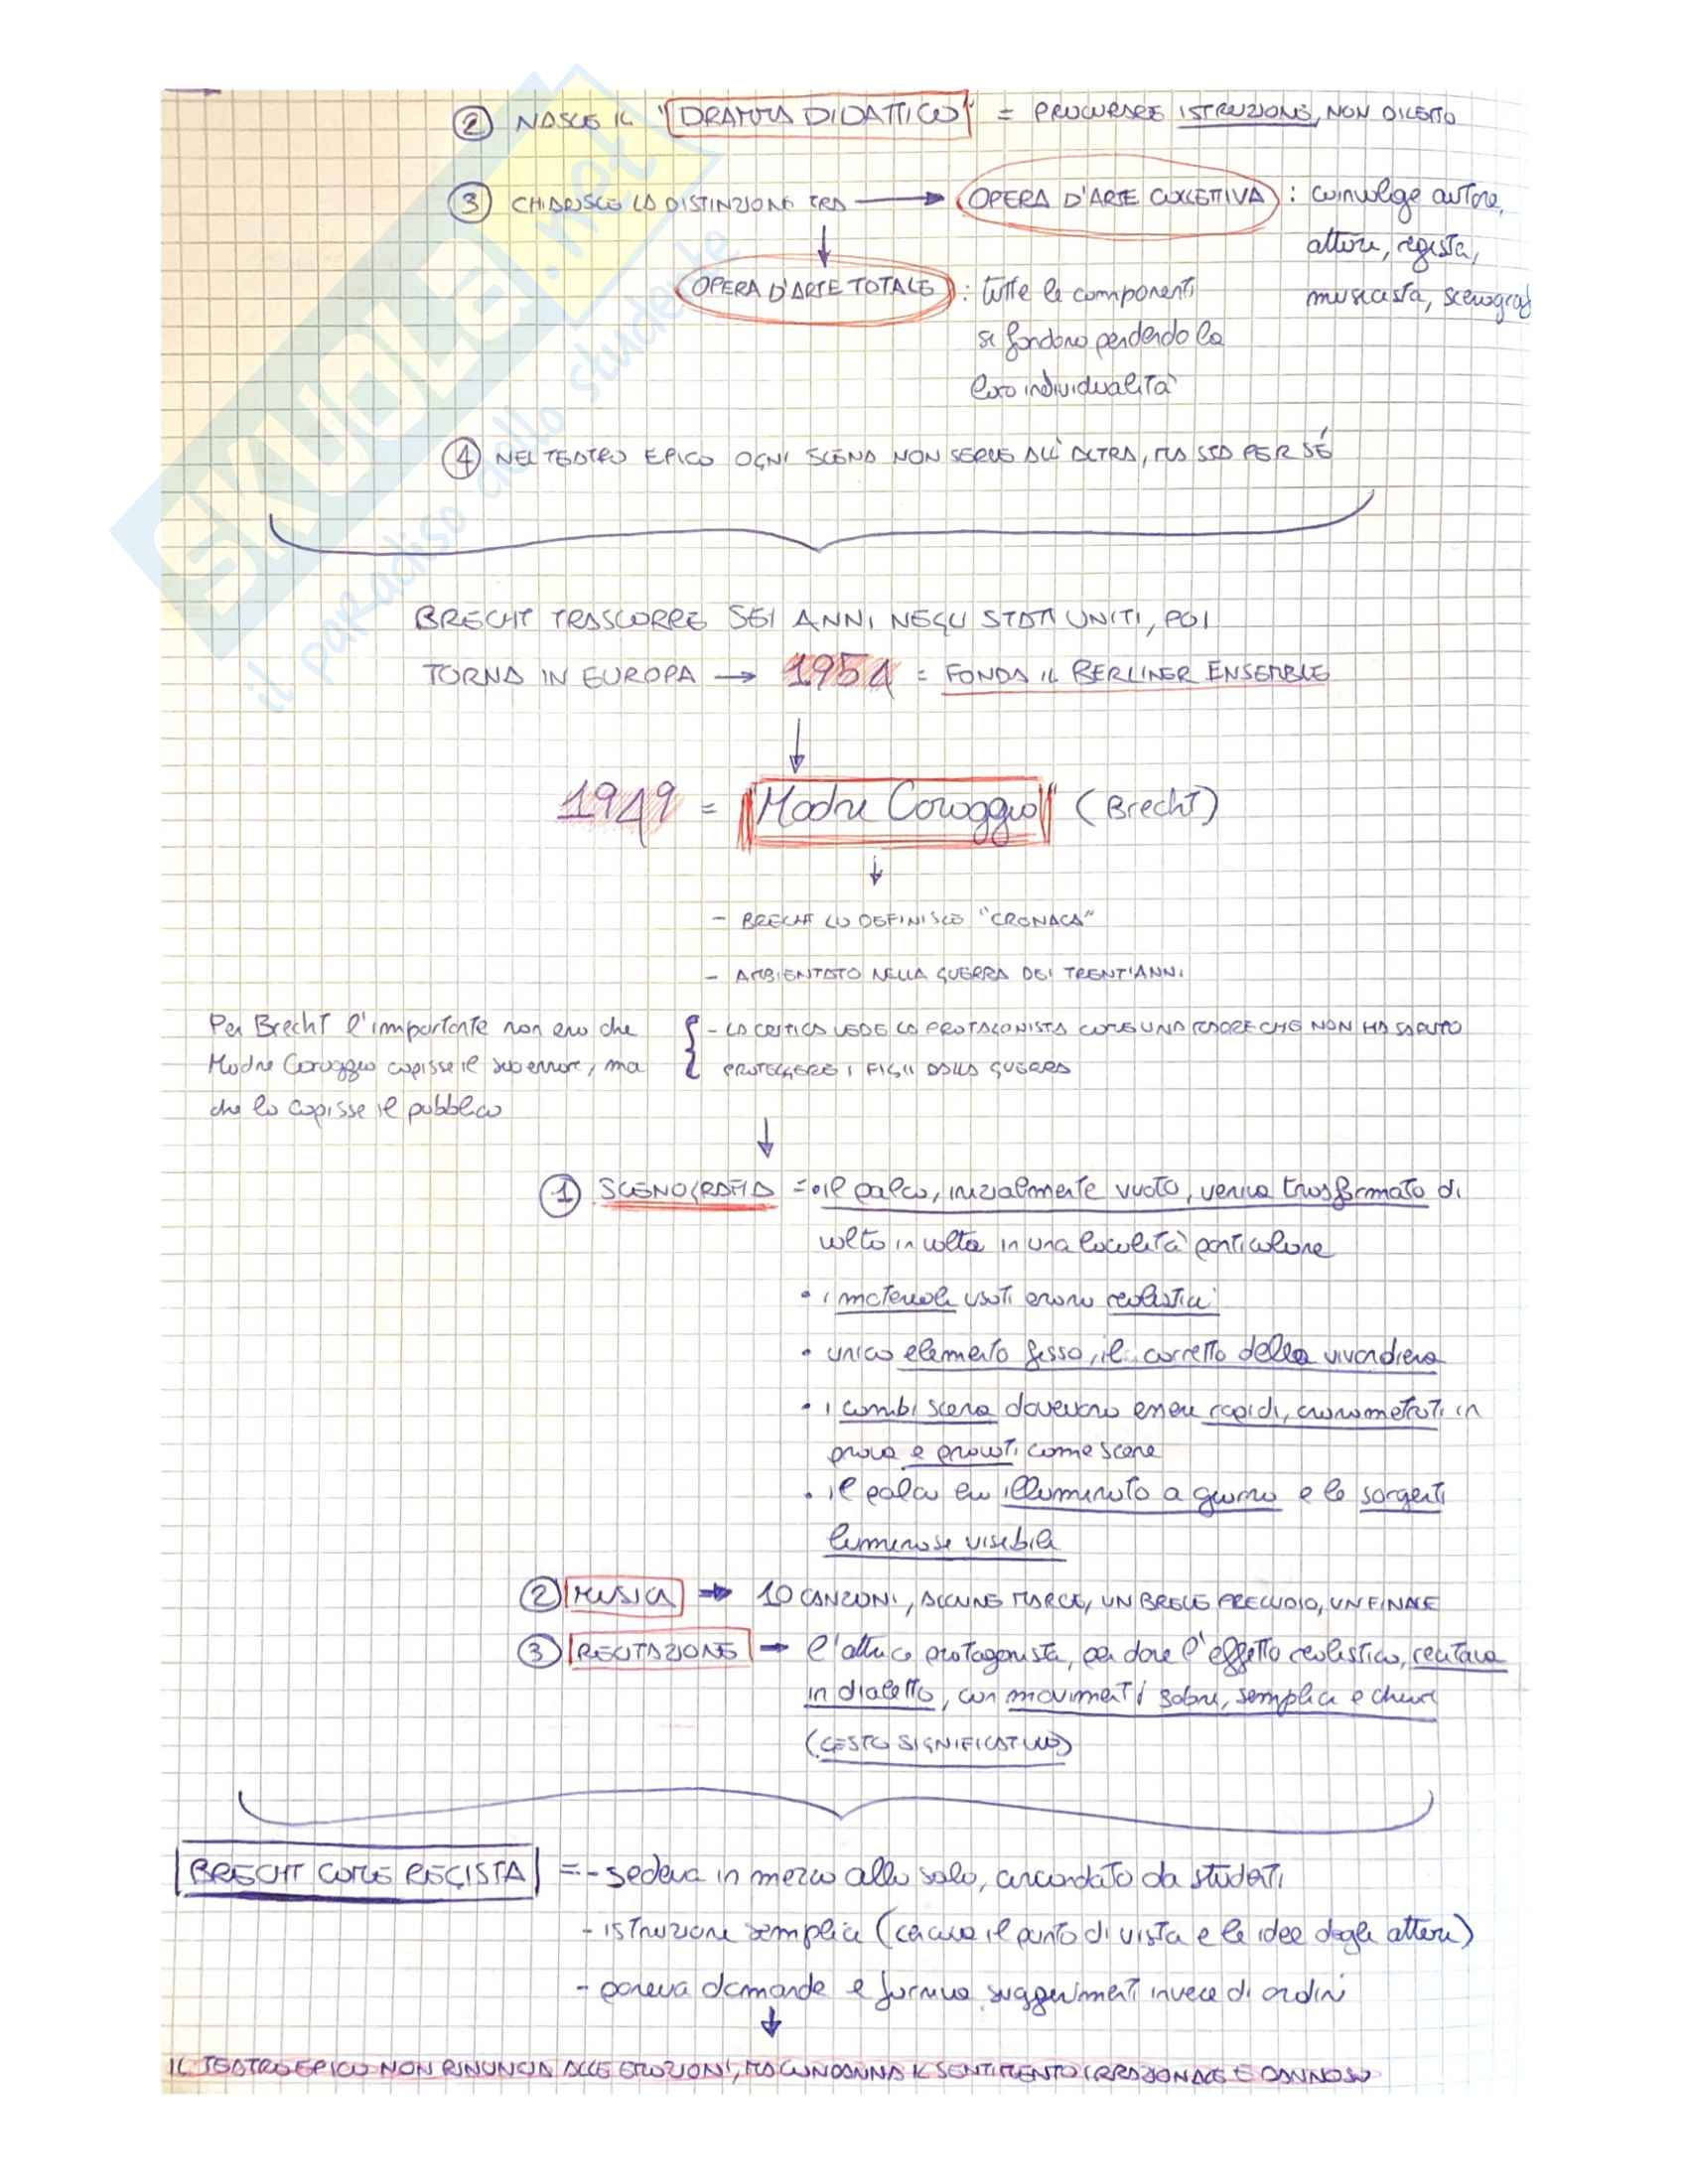 ② NASCE IL "DRAMMA DIDATTICO" = PROCURARE ISTRUZIONE, NON DILETTO
③ CHIARISCE LA DISTINZIONE TRA → OPERA D'ARTE COLLETTIVA : coinvolge autore,
attori, regista,
musicista, scenograf
↓
OPERA D'ARTE TOTALE : tutte le componenti
si fondono perdendo la
loro individualità
④ NEL TEATRO EPICO OGNI SCENA NON SERVE ALL'ALTRA, MA STA PER SÉ
BRECHT TRASCORRE SEI ANNI NEGLI STATI UNITI, POI
TORNA IN EUROPA → 1954 = FONDA IL BERLINER ENSEMBLE
↓
1949 = "Madre Coraggio" (Brecht)
↓
- BRECHT LO DEFINISCE "CRONACA"
- AMBIENTATO NELLA GUERRA DEI TRENT'ANNI
- LA CRITICA VEDE LA PROTAGONISTA COME UNA MADRE CHE NON HA SAPUTO
PROTEGGERE I FIGLI DALLA GUERRA
Per Brecht l'importante non era che
Madre Coraggio capisse il suo errore, ma
che lo capisse il pubblico
↓
① SCENOGRAFIA = • il palco, inizialmente vuoto, veniva trasformato di
volta in volta in una località particolare
• i materiali usati erano realistici
• unico elemento fisso, il carretto della vivandiera
• i cambi scena dovevano essere rapidi, cronometrati in
prova e provati come scene
• il palco era illuminato a giorno e le sorgenti
luminose visibili
② MUSICA → 10 CANZONI, ALCUNE MARCE, UN BREVE PRELUDIO, UN FINALE
③ RECITAZIONE → l'attrice protagonista, per dare l'effetto realistico, recitava
in dialetto, con movimenti sobri, semplici e chiari
(GESTO SIGNIFICATIVO)
BRECHT COME REGISTA = - sedeva in mezzo alla sala, circondato da studenti
- istruzione semplici (cercava il punto di vista e le idee degli attori)
- poneva domande e forniva suggerimenti invece di ordini
↓
IL TEATRO EPICO NON RINUNCIA ALLE EMOZIONI, MA CONDANNA IL SENTIMENTO IRRAZIONALE E DANNOSO
SKUOLA.net
il paradiso dello studente